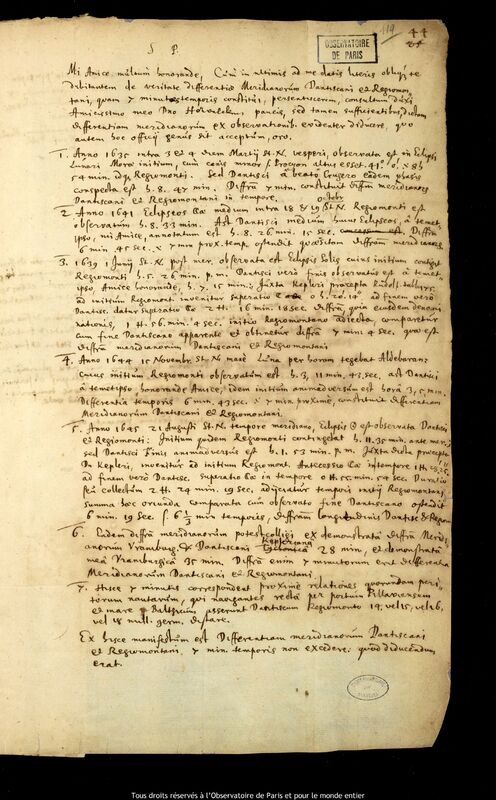 S P.
OBSERVATOIRE
DE PARIS
119
44
Mi Amice multum honorande, Cum in ultimis ad me datis literis te
dubitantem de veritate differentiæ Meridianorum Dantiscani et Regiomon-
tani, quam 7 minutis temporis constitui, persentiscerem, consultum duxi
Amicissimo meo Dno Hovelckio, paucis, sed tamen sufficientibus, dictam
differentiam meridianorum ex observationib. evidenter diducere, quo
autem hoc officij genus sit acceptum, oro.
1. Anno 1635 intra 3 et 4 diem Martij St. N. vesperi, observata est in Eclipsi
Lunari Mora initium, cum canis minor s. Procyon altus esset 41°. 0'. h. 8
54 min. Regiomonti. Sed Dantisci a beato Crugero eadem phasis
conspecta est h. 8. 47 min. Diffra 7 min. constituit diffm meridianorum
Dantiscani et Regiomontani in tempore.
2. Anno 1641 Eclipseos medium intra 18 & 19 Octob. St. N. Regiomonti est
observatum h. 8. 33 min. Ast Dantisci medium huius Eclipseos, à temet-
ipso, mi Amice, annotatum est h. 8. 26 min. 15 sec. Diffra
6 min. 45 sec. 7 min prox. temp. ostendit quæsitam diffram meridianor.
3. 1639 1 Junij St. N. post mer. observata est Eclipsis Solis cuius initium contigit
Regiomonti h. 5. 26 min. p. m. Dantisci vero finis observatus est à temet-
ipso Amice honorande, h. 7. 15 min.; Juxta Kepleri præcepta
ad initium Regiomont. invenitur superatio 0 h. 20. 14" ad finem vero
Dantisc. datur superatio 2 H. 16 min. 18 sec. Diffra,
1 H. 56 min. 4 sec. initio Regiomontano adjecta, comparetur
cum Dantiscano fine apparente et obtinetur diffra 7 min 4 sec, quæ est
diffra meridianorum Dantiscani et Regiomontani
4. Anno 1644 15 Novembr. St. N. mane Luna per horam tegebat Aldebaran;
cuius initium Regiomonti observatum est h. 3, 11 min, 43 sec, ast Dantisci
à temetipso honorande Amice, idem initium animadversum est hora 3, 5 min.
Differentia temporis 6 min. 43 sec. 7 min proximè, constituit differentiam
Meridianorum Dantiscani et Regiomontani.
5. Anno 1645 21 Augusti St. N. tempore meridiano, Eclipsis est observata Dantisci
et Regiomonti: Initium quidem Regiomonti contingebat h. 11. 35 min. ante mer.;
sed Dantisci Finis animadversus est h. 1. 53 min. p. m. Juxta dicta præcepta
Dn Kepleri, invenitur ad initium Regiomont. Antecessio in tempore 1 H.
ad finem verò Dantisc. superatio in tempore 0 H. 55 min. 54 sec. Duratio
seu collectum 2 H. 24 min. 19 Sec. adjiciatur tempori initij Regiomontani
summa hæc oriunda Comparata cum observato fine Dantiscano ostendit
6 min. 19 Sec. s. 6 1/3 min temporis, diffram longitudinis Dantisc & Regiom
6. Eadem diffra meridianorum potest colligi ex demonstrata diffra Meridi-
anorum Vraniburg. & Dantiscani Kepleriana 28 min, et demonstrata
mea Vraniburgica 35 min. Diffra enim 7 minutorum erit differentia
Meridianorum Dantiscani et Regiomontani.
7. Hisce 7 minutis correspondent proximè relationes quorundam peri-
torum nautarum, qui navigantes rectà per portum Pillaviensem
et mare Balthicum asserunt Dantiscum Regiomonto 14, vel 15, vel 16,
vel 18 mill. germ. distare.
Ex hisce manifestum est Differentiam meridianorum Dantiscani
et Regiomontani, 7 min. temporis non excedere: quod diducendum
erat.
OBSERVATOIRE
DE
Tous droits réservés à l'Observatoire de Paris et pour le monde entier